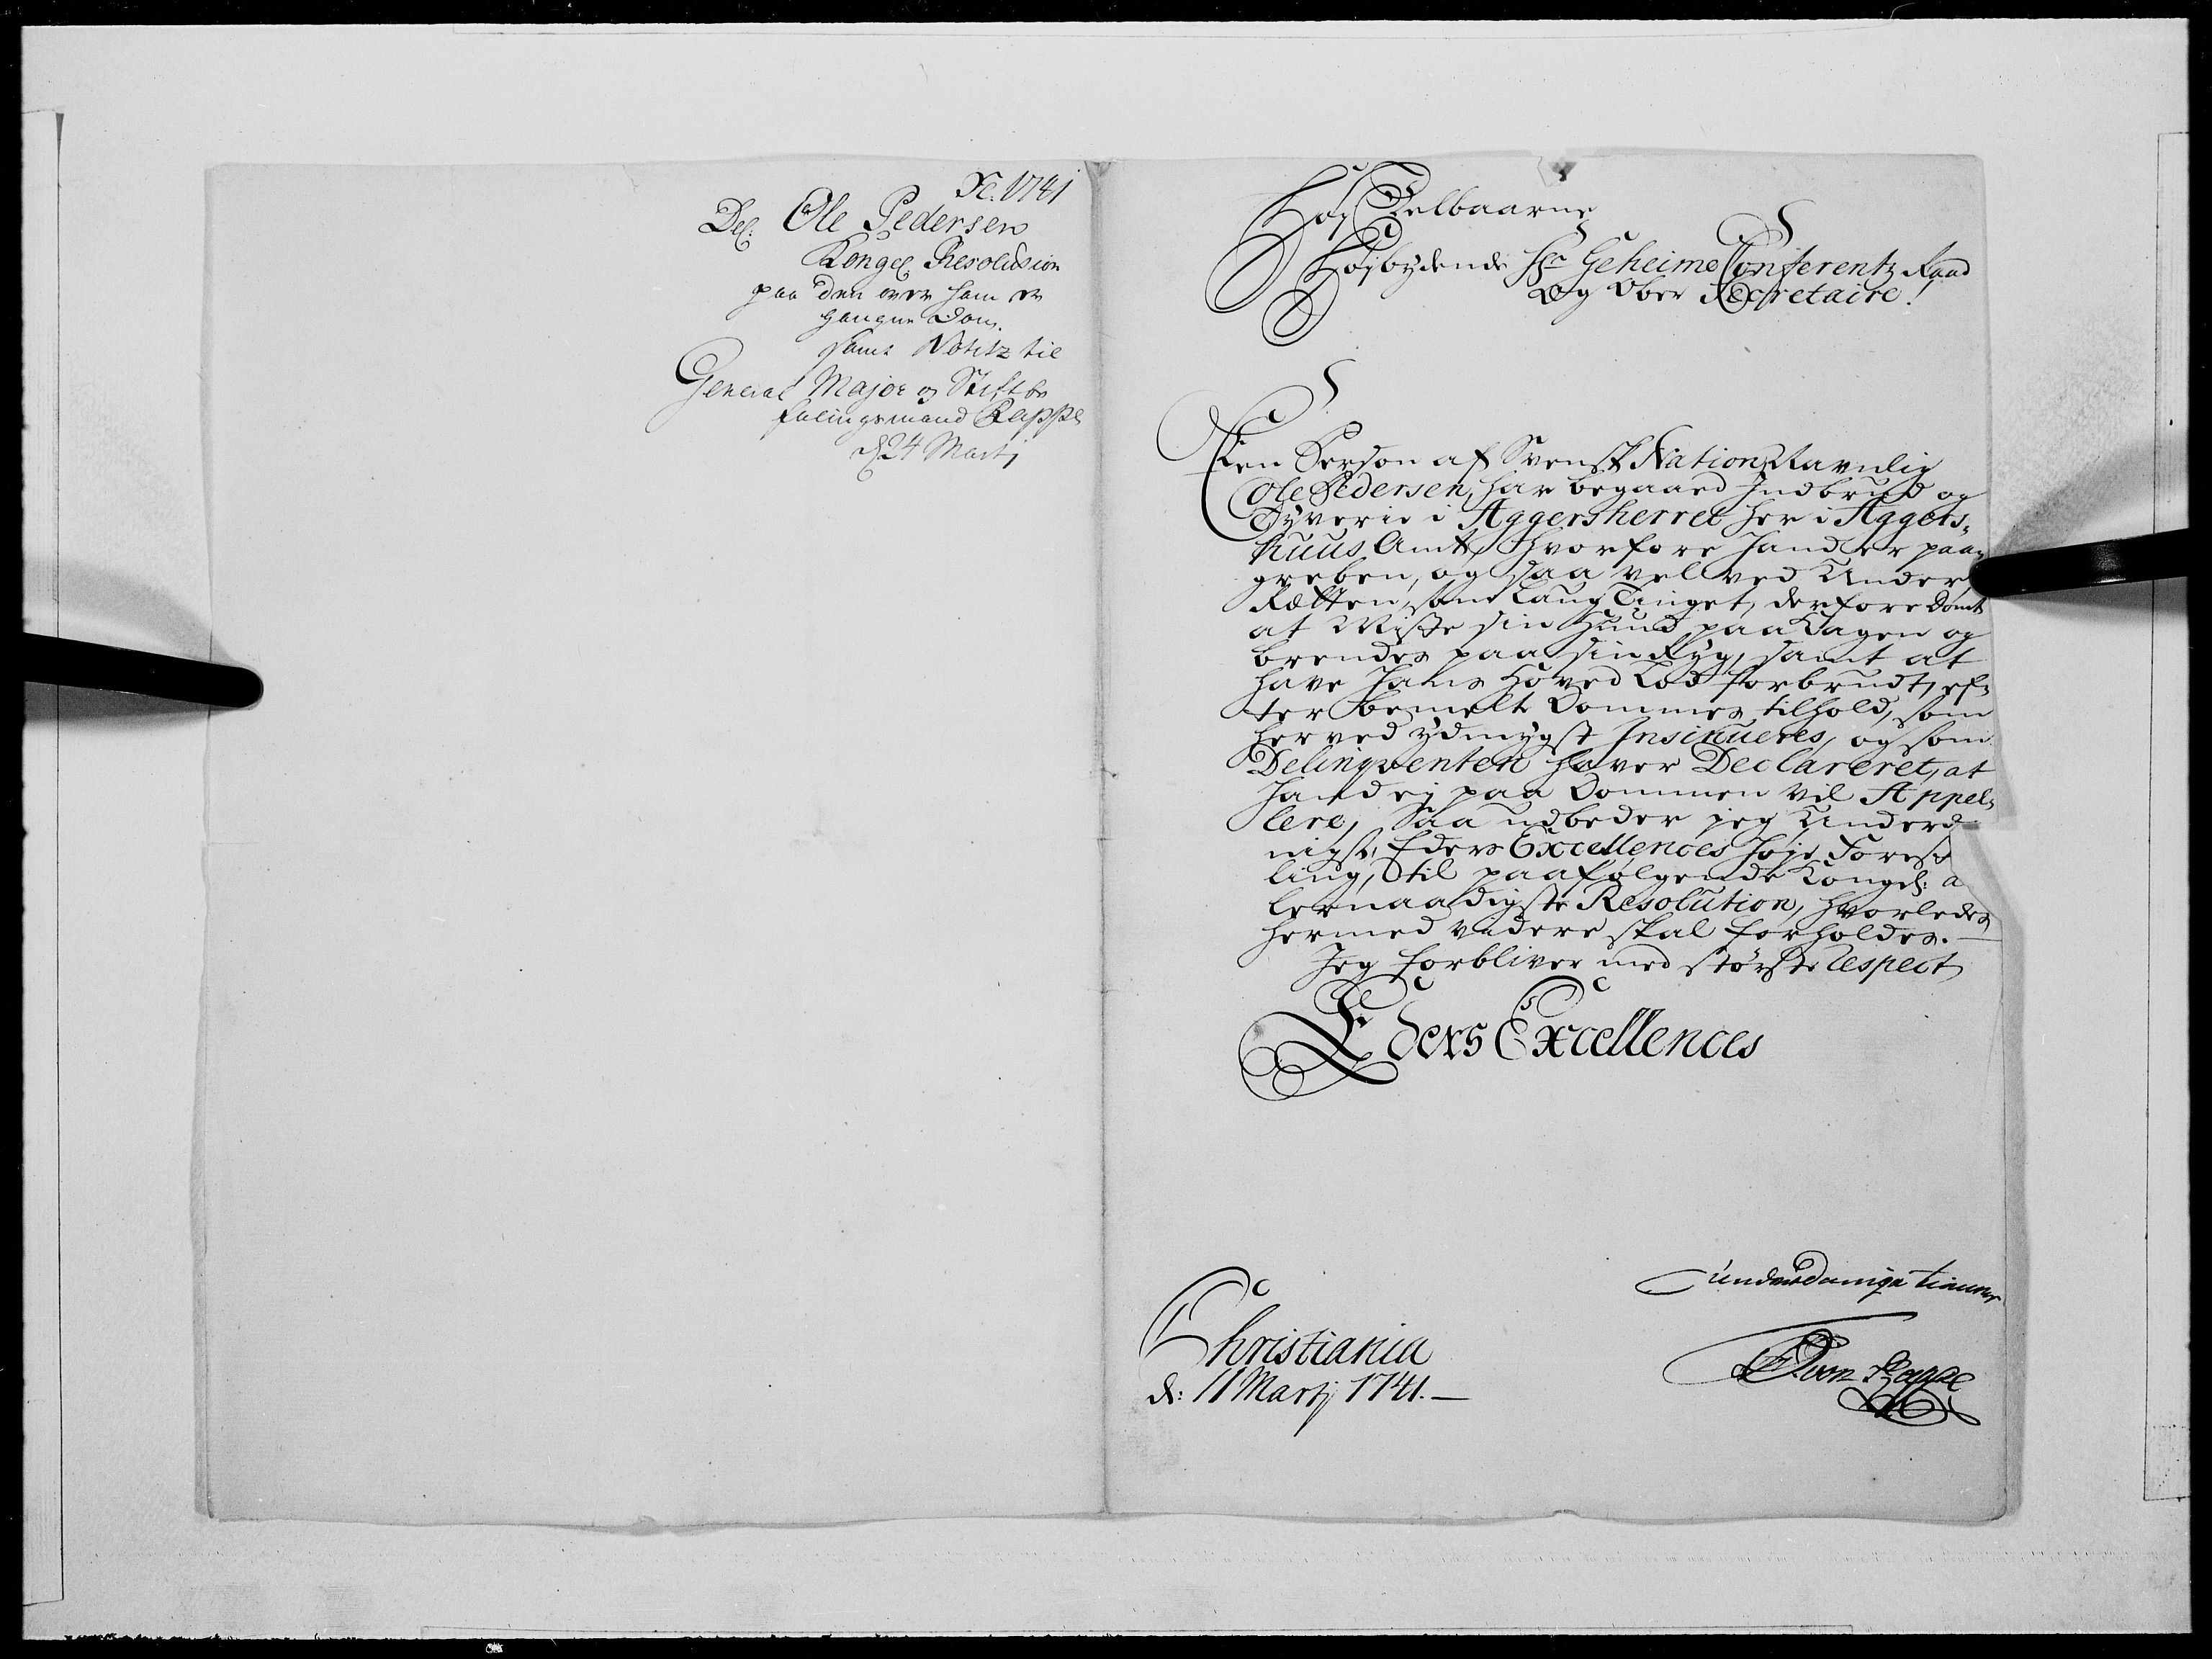 1741
Del: Ole Pedersen
Kongel: Resolution
paa den over ham er
gangne Dom.
samt Notitz til
General Major og Stiftbe
falingsmand Rappe
d 24 Martj
Høy Edelbaarne
Højbydende Hr Geheime Conferentz Raad
Og Ober Secretaire!
En Person af Svensk Nation, Navnlig
Ole Pedersen, har begaaed Indbrud og
Tyverie i Aggersherret her i Aggers-
huus Amt, hvorfore hand er paa-
greben, og saa vel ved Under
Rætten, som Laug Tinget, derfore Dømt
at Miste sin Hud paa Kagen og
brendes paa sin Ryg, samt at
have hans Hoved Lod forbrudt, ef-
ter bemelte Dommes tilhold, som
herved ydmygst Insinueres, og som
Delinqventen haver Declareret, at
hand ej paa Dommen vil Appel-
lere, Saa udbeder jeg Underd
nigst, Eders Excellences høje Forest
ling, til paafølgende Kongel: a
lernaadigste Resolution, hvorledes
hermed videre skal forholdes.
Jeg forbliver med største respect
Eders Excellences
underdanige tiener
von Rappe
Christiania
d: 11 Martj 1741.